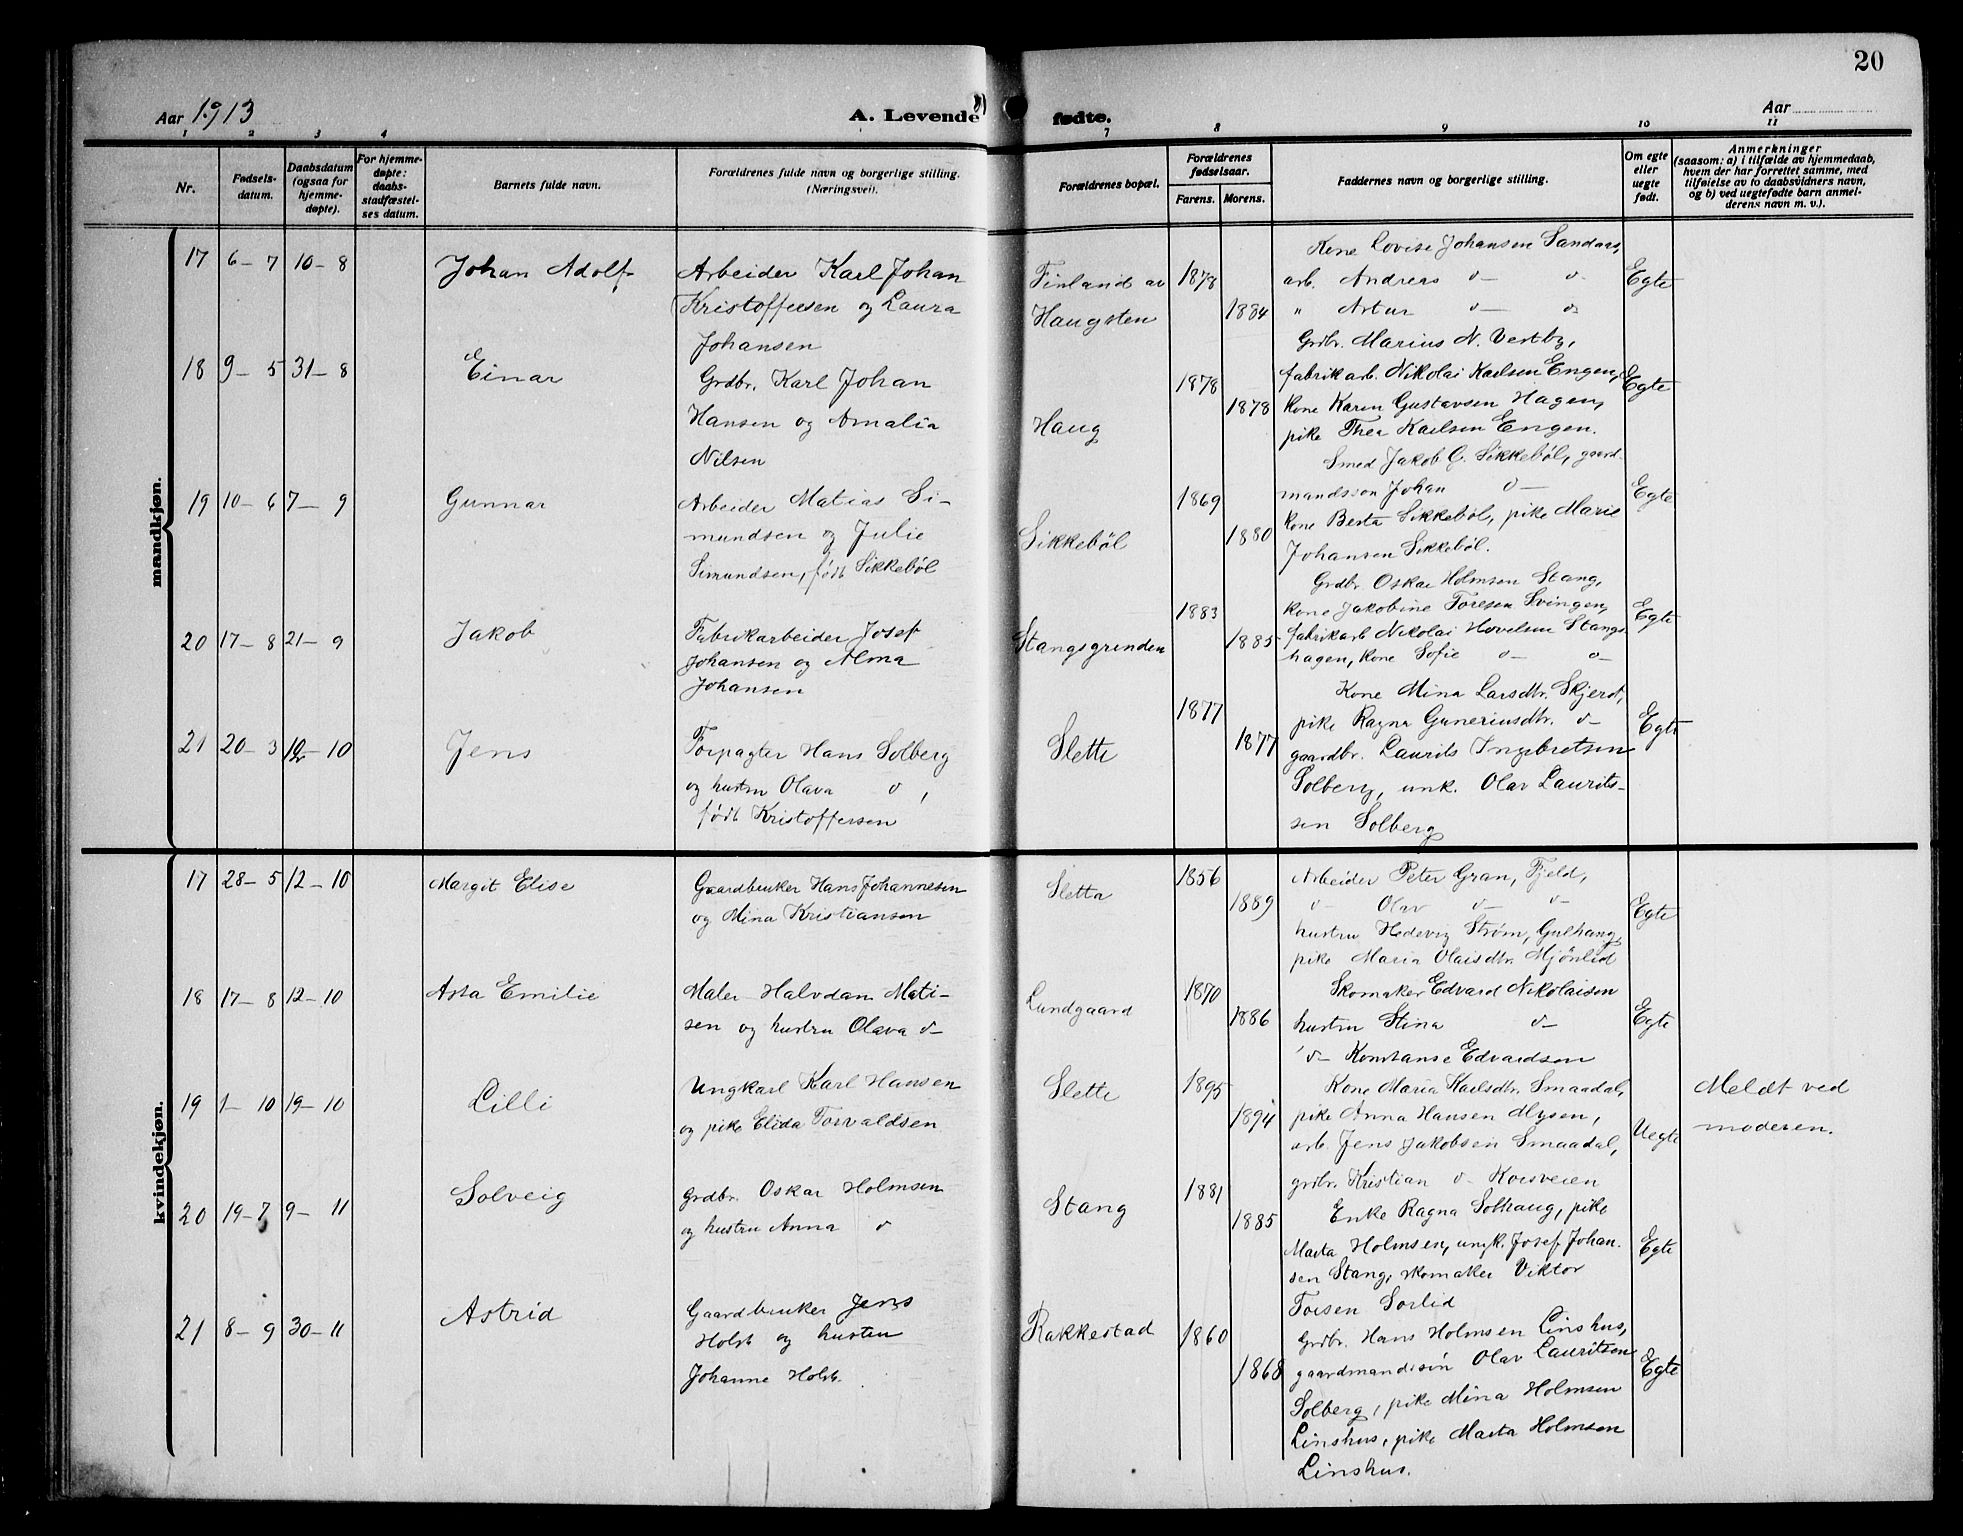 20
Aar 1913
A. Levende fødte.
Aar
1 2 3 4 7 8 9 10 11
Nr.
Fødsels-
datum.
Daabsdatum
(ogsaa for
hjemme-
døpte).
For hjemme-
døpte:
daabs-
stadfæstel-
ses datum.
Barnets fulde navn.
Forældrenes fulde navn og borgerlige stilling.
(Næringsvei).
Forældrenes bopæl.
Forældrenes
fødselsaar.
Farens. Morens.
Faddernes navn og borgerlige stilling.
Om egte
eller
uegte
født.
Anmerkninger
(saasom: a) i tilfælde av hjemmedaab,
hvem der har forrettet samme, med
tilføielse av to daabsvidners navn,
og b) ved uegtefødte barn anmel-
derens navn m. v.).
mandkjøn.
17 6–7 10–8 Johan Adolf
Arbeider Karl Johan
Kristoffersen og Laura
Johansen
Finland av
Haugsten
1878
1884
Kone Lovise Johansen Sandaas,
arb. Andreas d– d
" Artur d– d
Grdbr. Marius N. Vestby,
Egte
18 9–5 31–8 Einar
Grdbr. Karl Johan
Hansen og Amalia
Nilsen
Haug
1878
1878
fabrikarb. Nikolai Karlsen Engen,
kone Karen Gustavsen Hagen,
pike Thea Karlsen Engen.
Egte
19 10–6 7–9 Gunnar
Arbeider Matias Si-
mundsen og Julie
Simundsen, født Sikkebøl
Sikkebøl
1869
1880
Smed Jakob G. Sikkebøl, gaard-
mandssøn Johan d–
kone Berta Sikkebøl, pike Marie
Johansen Sikkebøl.
Egte
20 17–8 21–9 Jakob
Fabrikarbeider Josef
Johansen og Alma
Johansen
Stangsgrinden
1883
1885
Grdbr. Oskar Holmsen Stang,
kone Jakobine Toresen Svingen,
fabrikarb Nikolai Hovelsen Stangs-
hagen, kone Sofie d– d–
Egte
21 20–3 12–10 Jens
Forpagter Hans Solberg
og hustru Olava d,
født Kristoffersen
Slette
1877
1877
Kone Mina Larsdtr. Skjerot,
pike Ragna Guneriusdtr. d–
gaardbr. Laurits Ingebretsen
Solberg, unk. Olav Laurits-
sen Solberg
Egte
kvindekjøn.
17 28–5 12–10 Margit Elise
Gaardbruker Hans Johannesen
og Mina Kristiansen
Sletta
1856
1889
Arbeider Peter Gran, Fjeld,
d– Olav d– d–
hustru Hedevig Strøm, Gulhaug,
pike Maria Olaisdtr. Mjönlid
Egte
18 17–8 12–10 Asta Emilie
Maler Halvdan Mati-
sen og hustru Olava d–
Lundgaard
1870
1886
Skomaker Edvard Nikolaisen
hustru Stina d–
d– Konstanse Edvardsen
Egte
19 1–10 19–10 Lilli
Ungkarl Karl Hansen
og pike Elida Torvaldsen
Slette
1895
1894
Kone Maria Karlsdtr. Smaadal,
pike Anna Hansen Mysen,
arb. Jens Jakobsen Smaadal,
grdbr. Kristian d– Korsveien
Uegte
Meldt ved
moderen.
20 19–7 9–11 Solveig
Grdbr. Oskar Holmsen
og hustru Anna d
Stang
1881
1885
Enke Ragna Solhaug, pike
Marta Holmsen, ungk. Josef Johan-
sen Stang, skomaker Viktor
Torsen Sorlid
Egte
21 8–9 30–11 Astrid
Gaardbruker Jens
Holst og hustru
Johanne Holst.
Rakkestad
1860
1868
Grdbr. Hans Holmsen Linshus,
gaardmandssøn Olav Lauritsen
Solberg, pike Mina Holmsen
Linshus, pike Marta Holmsen
Linshus.
Egte